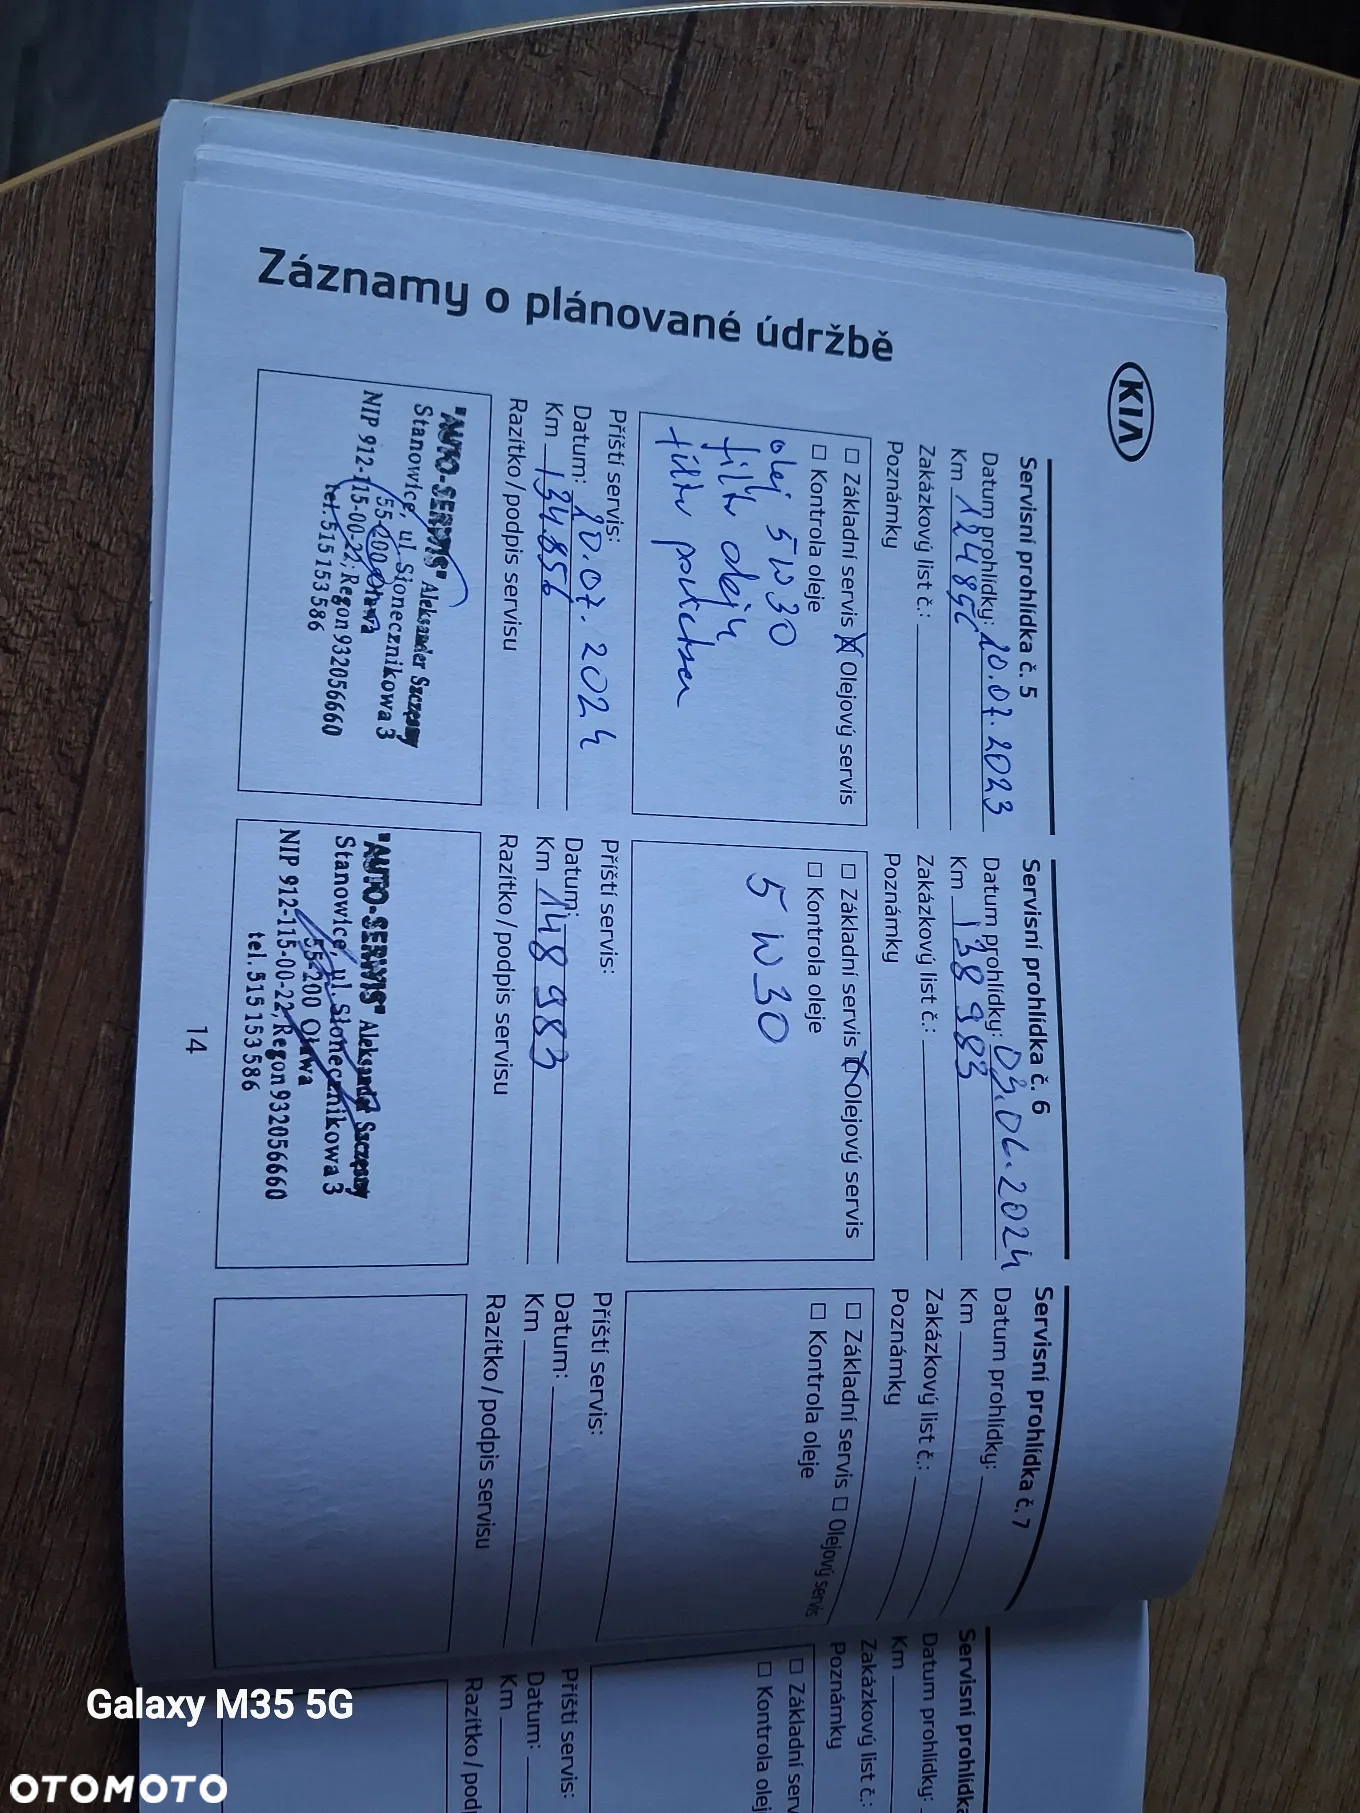 KIA
Záznamy o plánované údržbě
Servisní prohlídka č. 5
Datum prohlídky: 20.07.2023
Km 124856
Zakázkový list č.:
Poznámky
□ Základní servis ☒ Olejový servis
□ Kontrola oleje
olej 5W30
filtr oleju
filtr
Příští servis:
Datum: 20.07.2024
Km 134.856
Razítko/podpis servisu
"AUTO-SERWIS" Aleksander Szczęsny
Stanowice, ul. Słonecznikowa 3
55-200 Oława
NIP 912-115-00-22; Regon 932056660
tel. 515 153 586
Servisní prohlídka č. 6
Datum prohlídky: 2024
Km 138 983
Zakázkový list č.:
Poznámky
□ Základní servis ☒ Olejový servis
□ Kontrola oleje
5W30
Příští servis:
Datum:
Km 148 983
Razítko/podpis servisu
"AUTO-SERWIS" Aleksander Szczęsny
Stanowice, ul. Słonecznikowa 3
55-200 Oława
NIP 912-115-00-22, Regon 932056660
tel. 515 153 586
Servisní prohlídka č. 7
Datum prohlídky:
Km
Zakázkový list č.:
Poznámky
□ Základní servis □ Olejový servis
□ Kontrola oleje
Příští servis:
Datum:
Km
Razítko/podpis servisu
14
Servisní prohlídka
Datum prohlídky:
Km
Zakázkový list č.:
Poznámky
□ Základní serv
□ Kontrola olej
Příští servis:
Datum:
Km
Razítko/pod
Galaxy M35 5G
OTOMOTO